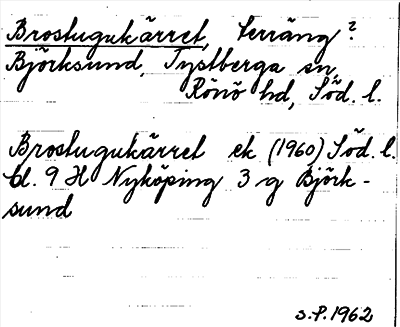 Brostugukärret, Terräng?
Björksund, Tystberga sn,
Rönö hd, Söd. l.
Brostugukärret ek (1960) Söd. l.
bl. 9 H Nyköping 3 g Björk-
sund
S.P. 1962